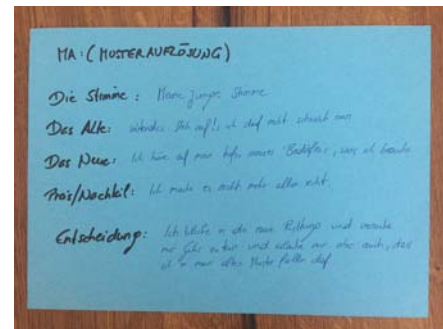 MA: (MUSTERAUFLÖSUNG)
Die Stimme: Meine junge Stimme
Das Alte: Dich auf!, ich darf nicht schwach sein
Das Neue: Ich höre auf mein tiefes inneres Bedürfnis, was ich brauche
Preis/Nachteil: Ich mache es nicht mehr allen recht.
Entscheidung: Ich bleibe in die neue Richtung und
mir und erlaube mir aber auch, dass
ich in mein altes Muster fallen darf.